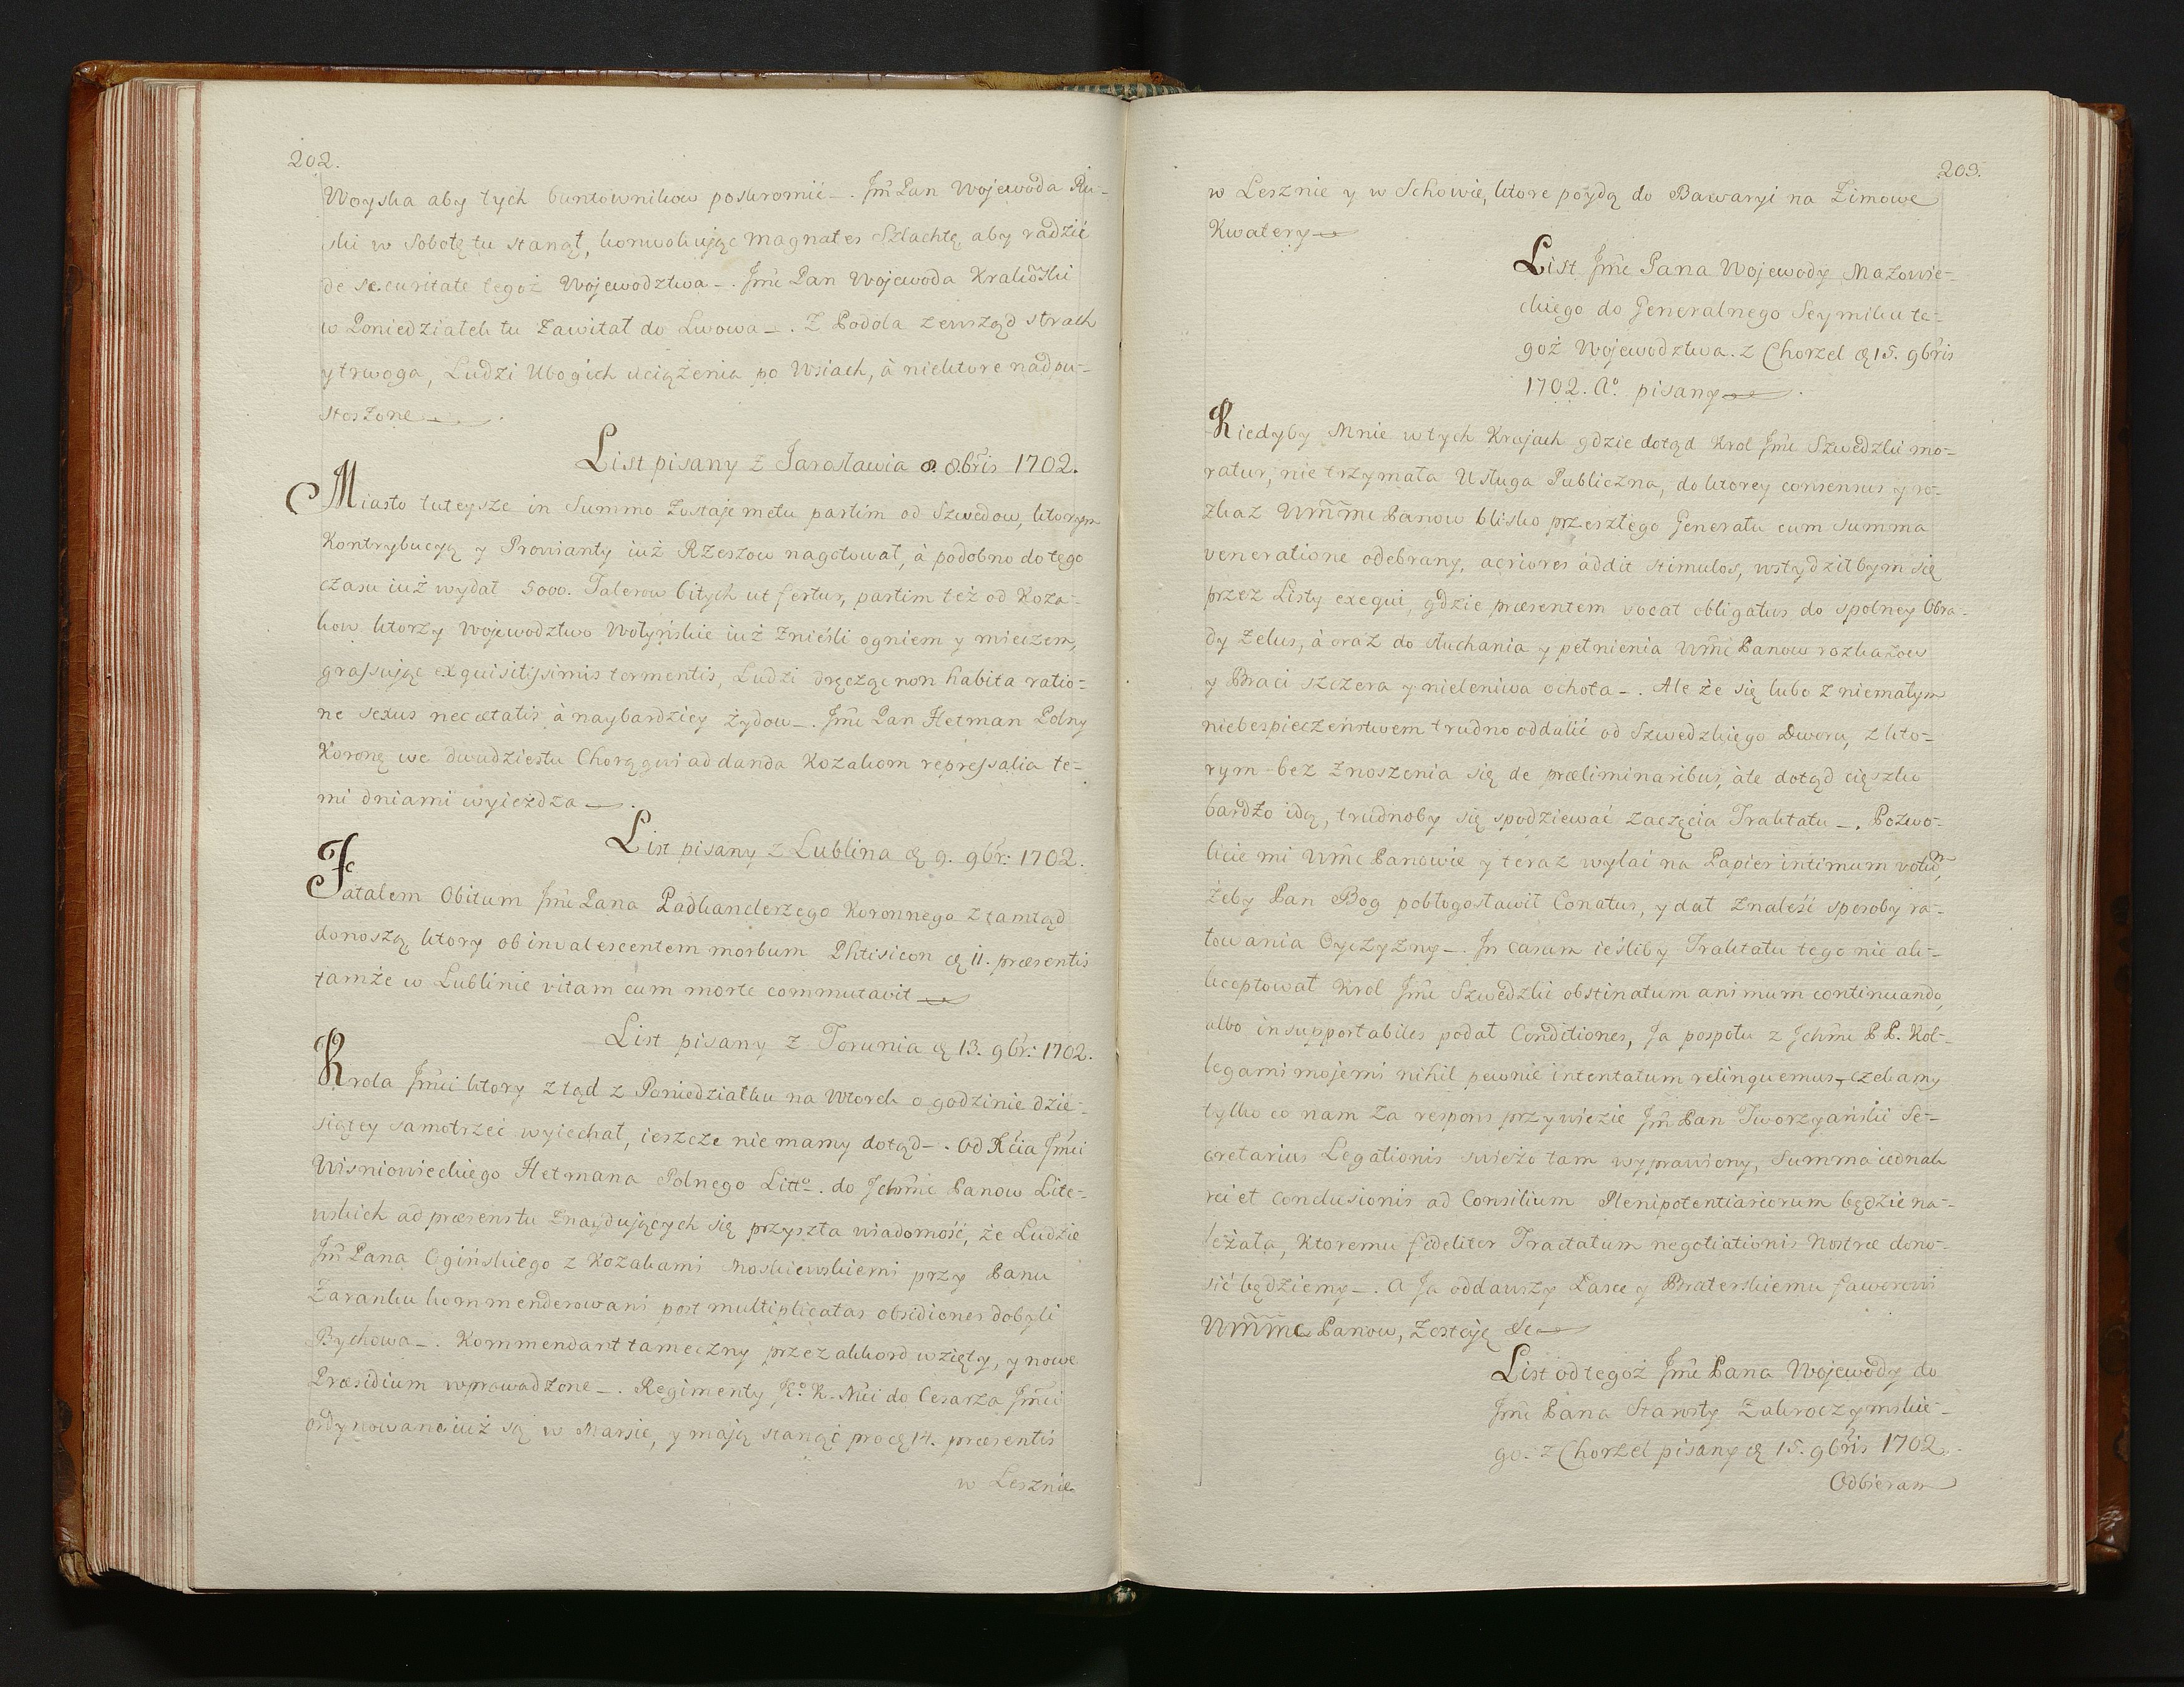 202.
Woyska aby tych buntownikow poskromić _. Jm̃ Pan Wojewoda Ru-
ski w Sobotę tu stanął, konwokując Magnates Szlachtę aby radzić
de securitate tegoż Wojewodztwa _. Jmc̃ Pan Wojewoda Krakõski
w Poniedziałek tu zawitał do Lwowa _. Z Podola zewsząd strach
y trwoga, Ludzi Ubogich uciążenia po Wsiach, à niektore nad pu-
stoszone _.
List pisany z Jarosławia 8. 8bris 1702.
Miasto tuteysze in Summo zostaje metu partim od Szwedow, ktorym
Kontrybucyą y Prowianty iuż Rzeszow nagotował, à podobno do tego
czasu iuż wydał 5000. Talerow bitych ut fertur, partim też od Koza-
kow ktorzy Wojewodztwo Wołyńskie iuż Znieśli ogniem y mieczem,
grassując exquisitissimis tormentis, Ludzi dręcząc non habita ratio-
ne sexus nec ætatis à naybardziey Żydow _. Jmc̃ Pan Hetman Polny
Koronę we dwudziestu Chorągwi ad danda Kozakom repressalia te-
mi dniami wyieżdza _.
List pisany z Lublina ą 9. 9br: 1702.
Fatalem Obitum Jmc̃ Pana Padkanclerzego Koronnego ztamtąd
donoszą ktory ob invalescentem morbum Phtisicon ą 11. præsentis
tamże w Lublinie vitam cum morte commutavit
List pisany z Torunia ą 13. 9br: 1702.
Krola Jmc̃i ktory ztąd z Poniedziałku na Wtorek o godzinie dzie-
siątey samotrzeć wyiechał, ieszcze nie mamy dotąd _. Od Xcia Jmc̃i
Wisniowieckiego Hetmana Polnego Litto. do Ichmc̃ Panow Lite-
wskich ad præsens tu Znaydujących się przyszła wiadomość, że Ludzie
Jm̃ Pana Ogińskiego z Kozakami Moskiewskiemi przy Panu
Zaranku kommenderowani post multiplicatas obsidiones dobyli
Bychowa _. Kommendant tameczny przez akkord wzięty, y nowe
Præsidium wprowadzone _. Regimenty Jo. K. Mc̃i do Cesarza Jmc̃i
ordynowane iuż są w Marsie, y mają stanąć pro ą 14. præsentis
w Lesznie
203.
w Lesznie y w Schowie, ktore poydą do Bawaryi na Zimowe
Kwatery
List Jmc̃ Pana Wojewody Mazowie-
ckiego do Generalnego Seymiku te-
goż Wojewodztwa. z Chorzel ą 15. 9bris
1702. Ao. pisany
Kiedyby Mnie w tych Krajach gdzie dotąd Krol Jmc̃ Szwedzki mo-
ratur, nie trzymała Usługa Publiczna, do ktorey consensus y ro-
zkaz Wm̃m̃c Panow blisko przeszłego Generału cum Summa
veneratione odebrany, acriores addit stimulos, wstydziłbym się
przez Listy exequi, gdzie præsentem vocat obligatus do spolney Obra-
dy zelus, à oraz do słuchania y pełnienia Wmc̃ Panow rozkazow
y Braci szczera y nieleniwa ochota _. Ale że się lubo z niemałym
niebespieczeństwem trudno oddalić od Szwedzkiego Dworu, z kto-
rym bez Znoszenia się de præliminaribus, ále dotąd cięszko
bardzo idą, trudnoby się spodziewać zaczęcia Traktatu _. Pozwo-
licie mi Wmc̃ Panowie y teraz wylać na Papier intimum votum,
żeby Pan Bog pobłogosławił Conatus, y dał Znaleść sposoby ra-
towania Oyczyzny _. In Casum ieśliby Traktatu tego nie ak-
keeptował Krol Jmc̃ Szwedzki obstinatum animum continuando,
albo insupportabiles podał Conditiones, Ja pospołu z Ichmc̃ P P. Kol-
legami mojemi nihil pewnie intentatum relinquemus, czekamy
tylko co nam Za respons przywiezie Jm̃ Pan Tworzyański Se-
cretarius Legationis swieżo tam wyprawiony, Summa iednak
rei et conclusionis ad Consilium Plenipotentiariorum będzie na-
leżała, Ktoremu fideliter Tractatum negotiationis Nostræ dono-
sić będziemy _. A Ja oddawszy Łasce y Braterskiemu faworowi
Wm̃m̃c Panow, Zostaję &c
List od tegoż Jmc̃ Pana Wojewody do
Jmc̃ Pana Starosty Zakroczymskie-
go. z Chorzel pisany ą 15. 9bris 1702.
Odbieram